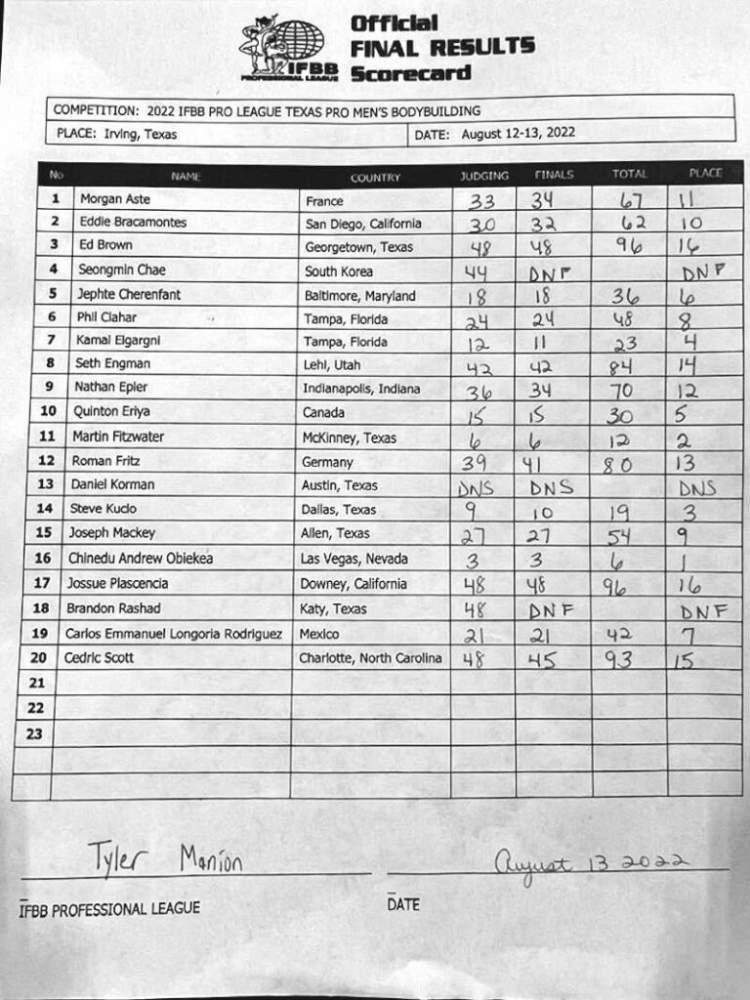 Official
FINAL RESULTS
IFBB Scorecard
PROFESSIONAL LEAGUE
COMPETITION: 2022 IFBB PRO LEAGUE TEXAS PRO MEN'S BODYBUILDING
PLACE: Irving, Texas DATE: August 12-13, 2022
No NAME COUNTRY JUDGING FINALS TOTAL PLACE
1 Morgan Aste France 33 34 67 11
2 Eddie Bracamontes San Diego, California 30 32 62 10
3 Ed Brown Georgetown, Texas 48 48 96 16
4 Seongmin Chae South Korea 44 DNF DNF
5 Jephte Cherenfant Baltimore, Maryland 18 18 36 6
6 Phil Clahar Tampa, Florida 24 24 48 8
7 Kamal Elgargni Tampa, Florida 12 11 23 4
8 Seth Engman Lehi, Utah 42 42 84 14
9 Nathan Epler Indianapolis, Indiana 36 34 70 12
10 Quinton Eriya Canada 15 15 30 5
11 Martin Fitzwater McKinney, Texas 6 6 12 2
12 Roman Fritz Germany 39 41 80 13
13 Daniel Korman Austin, Texas DNS DNS DNS
14 Steve Kuclo Dallas, Texas 9 10 19 3
15 Joseph Mackey Allen, Texas 27 27 54 9
16 Chinedu Andrew Obiekea Las Vegas, Nevada 3 3 6 1
17 Jossue Plascencia Downey, California 48 48 96 16
18 Brandon Rashad Katy, Texas 48 DNF DNF
19 Carlos Emmanuel Longoria Rodriguez Mexico 21 21 42 7
20 Cedric Scott Charlotte, North Carolina 48 45 93 15
21
22
23
Tyler Manion August 13 2022
IFBB PROFESSIONAL LEAGUE DATE